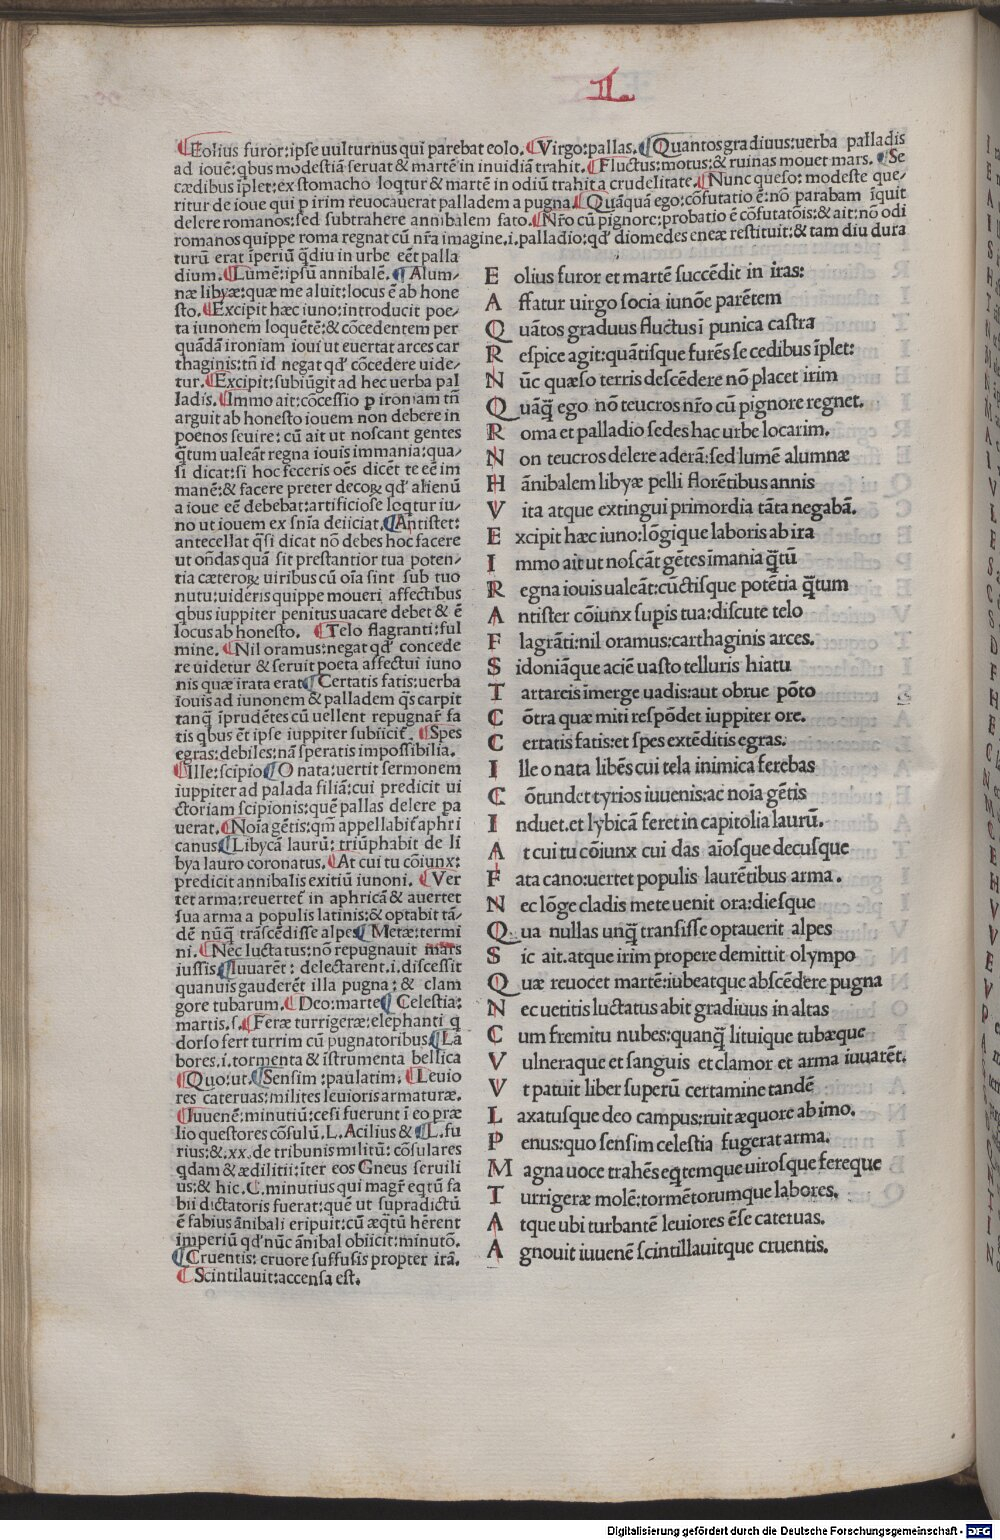 II.
¶Eolius furor:ipse uulturnus qui parebat eolo.¶Virgo:pallas.¶Quantos gradiuus:uerba palladis
ad iouē:qbus modestiā seruat & martē in inuidiā trahit.¶Fluctus:motus:& ruinas mouet mars.¶Se
cædibus īplet:ex stomacho loqtur & martē in odiū trahit a crudelitate.¶Nunc queso: modeste que-
ritur de ioue qui p irim reuocauerat palladem a pugna.¶Quāquā ego:cōfutatio ē:nō parabam īquit
delere romanos:sed subtrahere annibalem fato.¶Nr̄o cū pignore:probatio ē cōfutatōis:& ait:nō odi
romanos quippe roma regnat cū nr̄a imagine.i.palladio:qd' diomedes eneæ restituit:& tam diu dura
turū erat īperiū q̄diu in urbe eēt palla
dium.¶Lumē:ipsū annibalē.¶Alum-
næ libyæ:quæ me aluit:locus ē ab hone
sto.¶Excipit hæc iuno:introducit poe-
ta iunonem loquētē:& cōcedentem per
quādā ironiam ioui ut euertat arces car
thaginis:tñ id negat qd' cōcedere uide-
tur.¶Excipit:subiūgit ad hec uerba pal
ladis.¶Immo ait:cōcessio ꝑ ironiam tñ
arguit ab honesto iouem non debere in
poenos seuire: cū ait ut noscant gentes
q̄tum ualeāt regna iouis immania:qua-
si dicat:si hoc feceris oēs dicēt te eē im
manē:& facere preter decoꝝ qd' alienū
a ioue eē debebat:artificiose loqtur iu-
no ut iouem ex sn̄ia deiiciat.¶Antistet:
antecellat q̄si dicat nō debes hoc facere
ut oñdas quā sit prestantior tua poten-
tia cæteroꝝ uiribus cū oīa sint sub tuo
nutu:uideris quippe moueri affectibus
qbus iuppiter penitus uacare debet & ē
locus ab honesto. ¶Telo flagranti:ful
mine.¶Nil oramus:negat qd' concede
re uidetur & seruit poeta affectui iuno
nis quæ irata erat¶Certatis fatis:uerba
iouis ad iunonem & palladem q̄s carpit
tanq̄ īprudētes cū uellent repugnar̄ fa
tis qbus ēt ipse iuppiter subiicit̄.¶Spes
egras:debiles:nā speratis impossibilia.
¶Ille:scipio¶O nata:uertit sermonem
iuppiter ad palada filiā:cui predicit ui
ctoriam scipionis:quē pallas delere pa
uerat.¶Noīa gētis:qm̄ appellabit̄ aphri
canus¶Libycā laurū: triūphabit de li
bya lauro coronatus.¶At cui tu cōiunx:
predicit annibalis exitiū iunoni. ¶Ver
tet arma:reuertet̄ in aphricā & auertet
sua arma a populis latinis:& optabit tā-
dē nūq̄ trāscēdisse alpes¶Metæ:termi
ni.¶Nec luctatus:nō repugnauit mars
iussis¶Iuuarēt: delectarent.i.discessit
quanuis gauderēt illa pugna: & clam
gore tubarum.¶Deo:marte¶Celestia:
martis.s.¶Feræ turrigeræ:elephanti q
dorso fert turrim cū pugnatoribus¶La
bores.i.tormenta & īstrumenta bellica
¶Quo:ut.¶Sensim:paulatim.¶Leuio
res cateruas:milites leuioris armaturæ.
¶Iuuenē:minutiū:cesi fuerunt ī eo præ
lio questores cōsulū.L.Acilius &¶L.fu
rius:&.xx.de tribunis militū: cōsulares
qdam & ædilitii:īter eos Gneus seruili
us:& hic.C.minutius qui magr̄ eqtū fa
bii dictatoris fuerat:quē ut supradictū
ē fabius ānibali eripuit:cū æq̄tū hērent
imperiū qd' nūc ānibal obiicit:minutō.
¶Cruentis: cruore suffusis propter irā.
¶Scintilauit:accensa est.
E olius furor et martē succēdit in iras:
A ffatur uirgo socia iunōe parētem
Q uātos graduus fluctus ī punica castra
R espice agit:quātisque furēs se cedibus īplet:
N ūc quæso terris descēdere nō placet irim
Q uāq̄ ego nō teucros nr̄o cū pignore regnet.
R oma et palladio sedes hac urbe locarim.
N on teucros delere aderā:sed lumē alumnæ
H ānibalem libyæ pelli florētibus annis
V ita atque extingui primordia tāta negabā.
E xcipit hæc iuno:lōgique laboris ab ira
I mmo ait ut noscāt gētes īmania q̄tū
R egna iouis ualeāt:cūctisque potētia q̄tum
A ntister cōiunx supis tua:discute telo
F lagrāti:nil oramus:carthaginis arces.
S idoniāque aciē uasto telluris hiatu
T artareis īmerge uadis:aut obrue pōto
C ōtra quæ miti respōdet iuppiter ore.
C ertatis fatis:et spes extēditis egras.
I lle o nata libēs cui tela inimica ferebas
C ōtundet tyrios iuuenis:ac noīa gētis
I nduet.et lybicā feret in capitolia laurū.
A t cui tu cōiunx cui das aīosque decusque
F ata cano:uertet populis laurētibus arma.
N ec lōge cladis mete uenit ora:diesque
Q ua nullas unq̄ transisse optauerit alpes
S ic ait.atque irim propere demittit olympo
Q uæ reuocet martē:iubeatque abscēdere pugna
N ec uetitis luctatus abit gradiuus in altas
C um fremitu nubes:quanq̄ lituique tubæque
V ulneraque et sanguis et clamor et arma iuuarēt.
V t patuit liber superū certamine tandē
L axatusque deo campus:ruit æquore ab imo.
P enus:quo sensim celestia fugerat arma.
M agna uoce trahēs eq̄temque uirosque fereque
T urrigeræ molē:tormētorumque labores.
A tque ubi turbantē leuiores ēse cateruas.
A gnouit iuuenē scintillauitque cruentis.
Digitalisierung gefördert durch die Deutsche Forschungsgemeinschaft - DFG